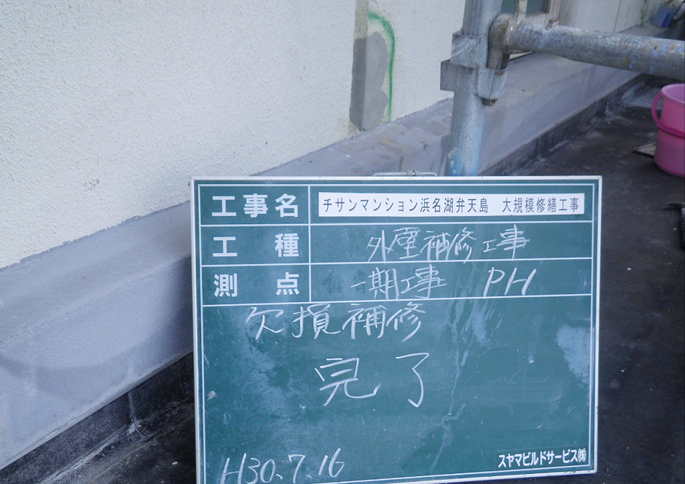 工事名 チサンマンション浜名湖弁天島 大規模修繕工事
工種 外壁補修工事
測点 一期工事 PH
欠損補修
完了
H30.7.16
スヤマビルドサービス㈱